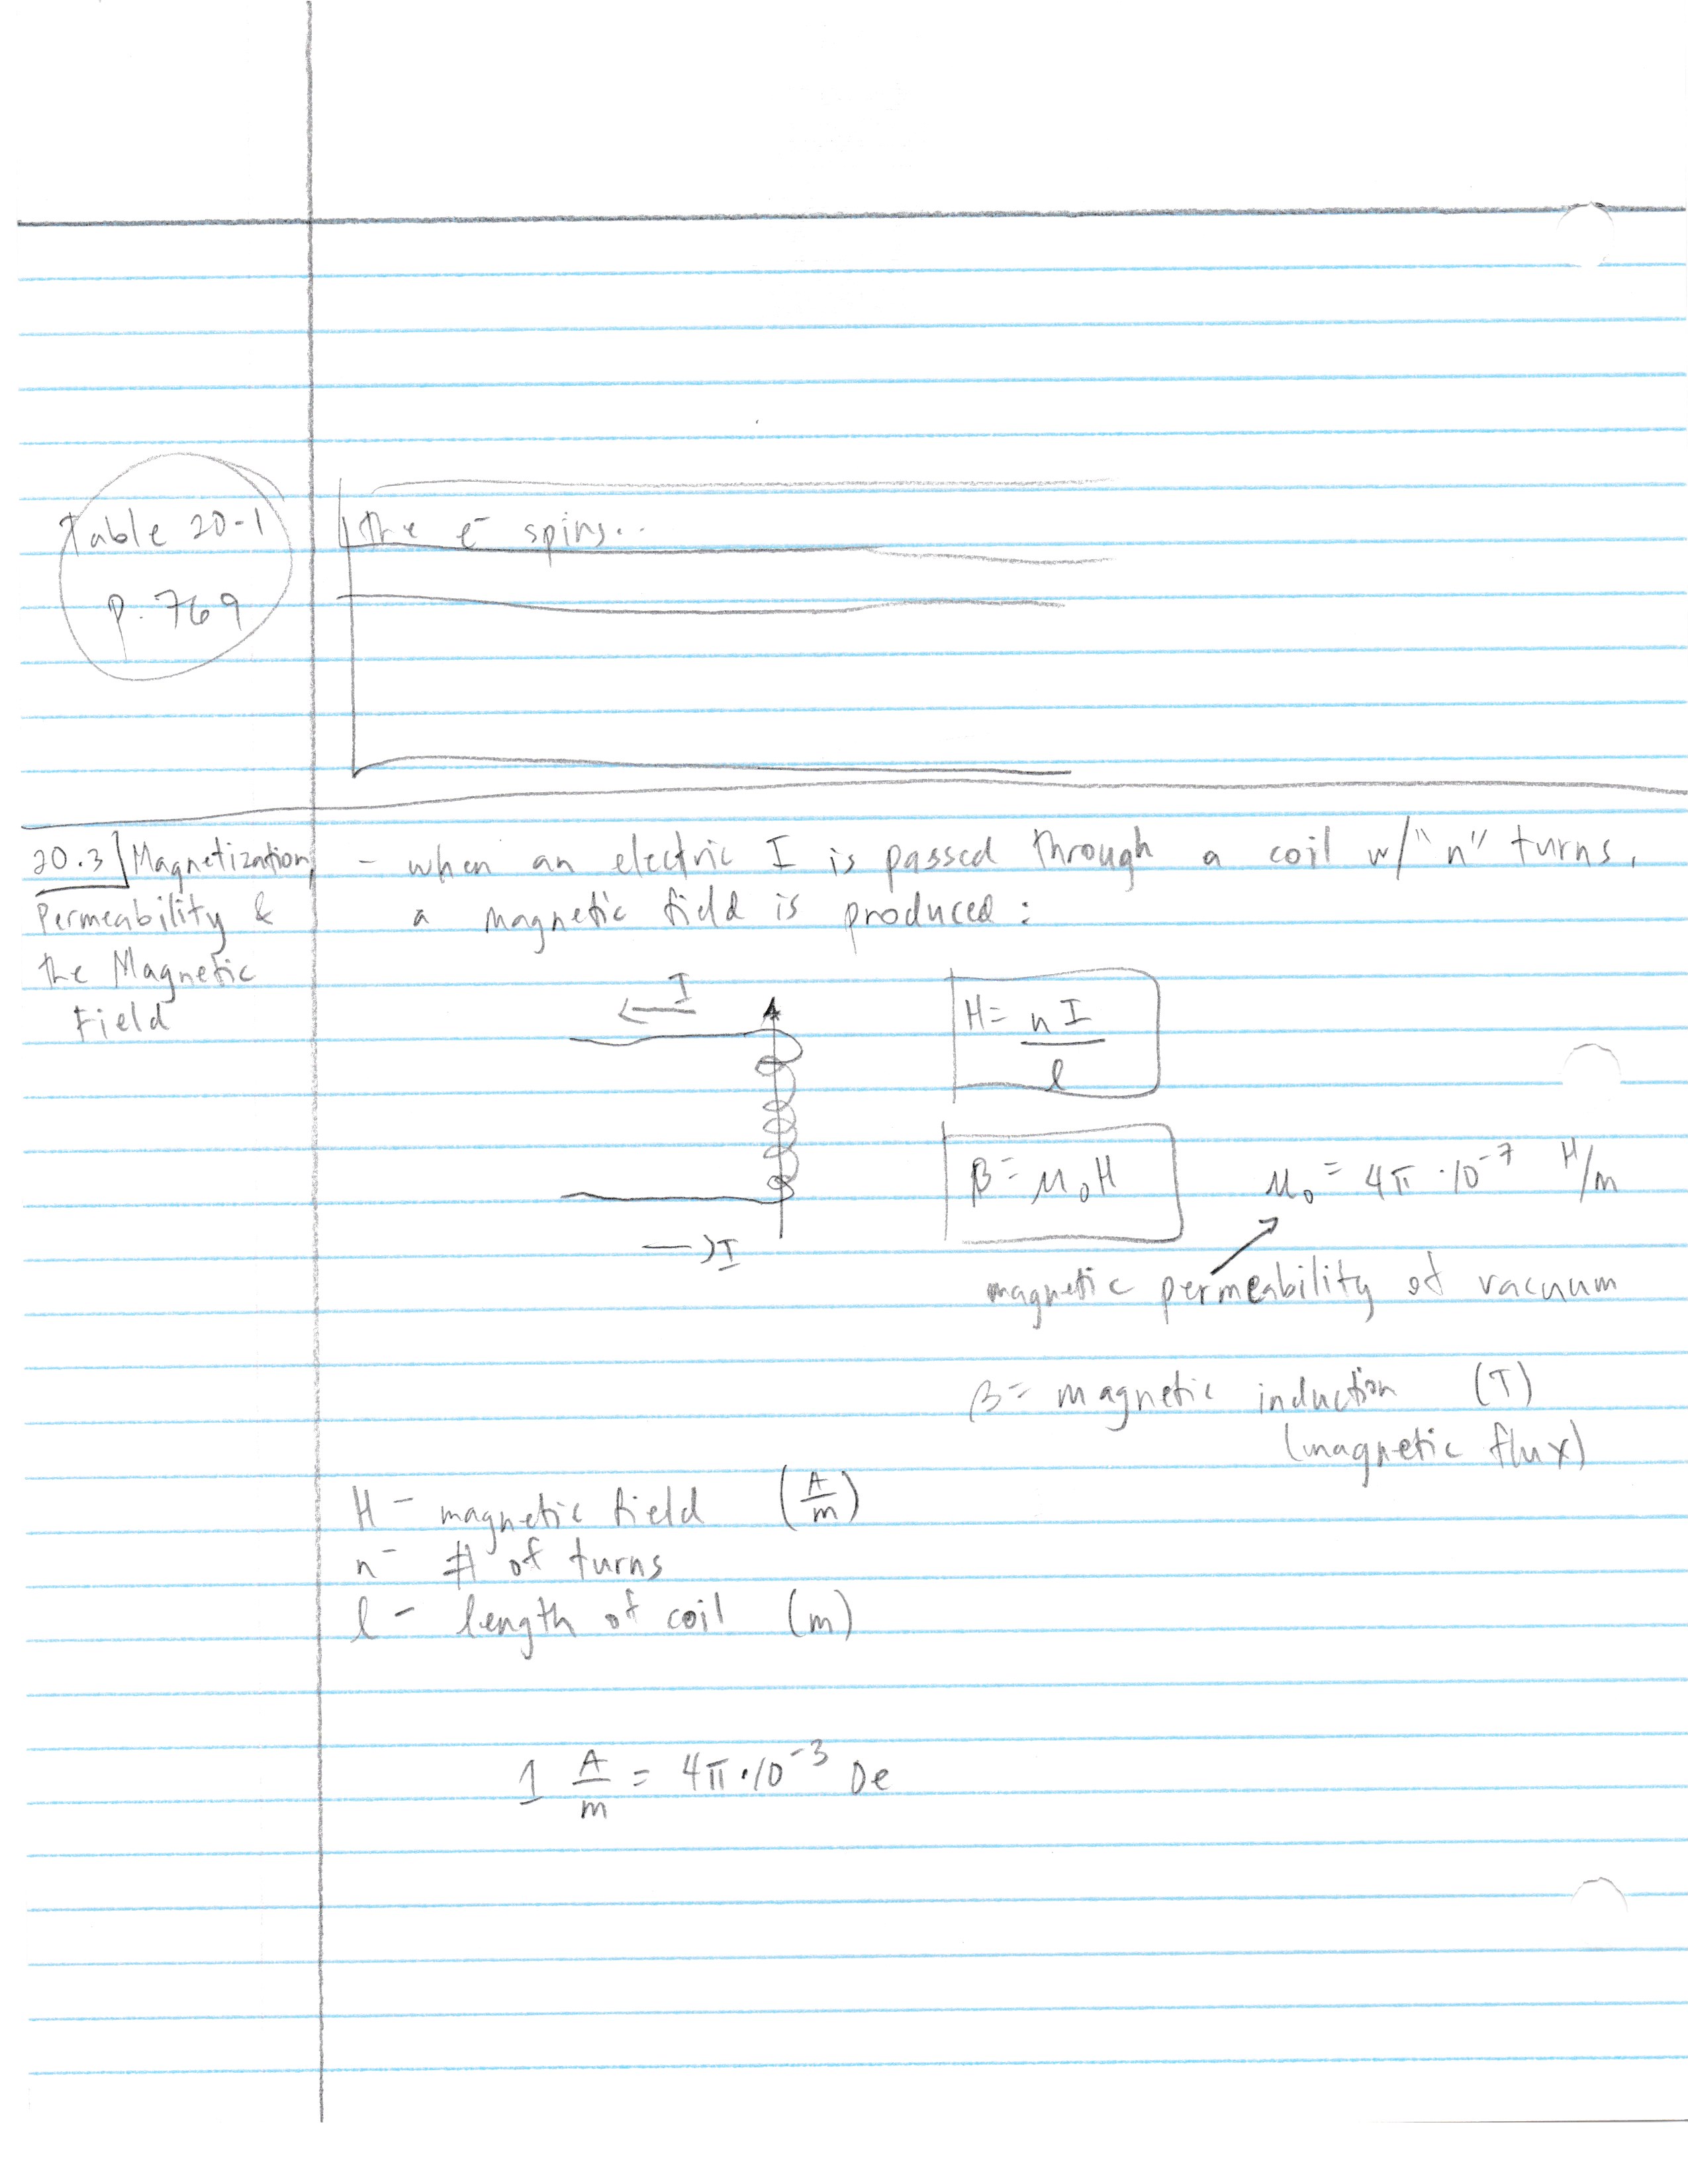 Table 20-1
p. 769
The e⁻ spins..
20.3 Magnetization,
Permeability &
the Magnetic
Field
- when an electric I is passed through a coil w/ "n" turns,
a magnetic field is produced:
← I
H = nI / l
β = μ₀H
μ₀ = 4π · 10⁻⁷ H/m
→ I
magnetic permeability of vacuum
β = magnetic induction (T)
(magnetic flux)
H - magnetic field (A/m)
n - # of turns
l - length of coil (m)
1 A/m = 4π · 10⁻³ Oe